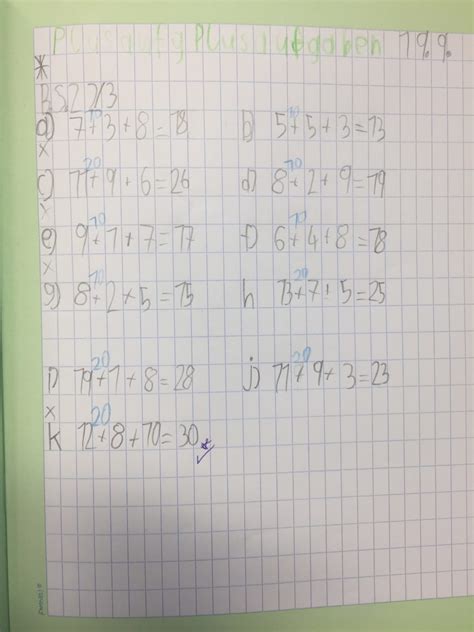 Plusaufg Plusaufgaben 19.9.
10 10
a) 7+3+8=18 b) 5+5+3=13
20 10
c) 11+9+6=26 d) 8+2+9=19
10 10
e) 9+1+7=17 f) 6+4+8=18
10 20
g) 8+2+5=15 h 13+7+5=25
20 20
i) 19+1+8=28 j) 11+9+3=23
20
k 12+8+10=30